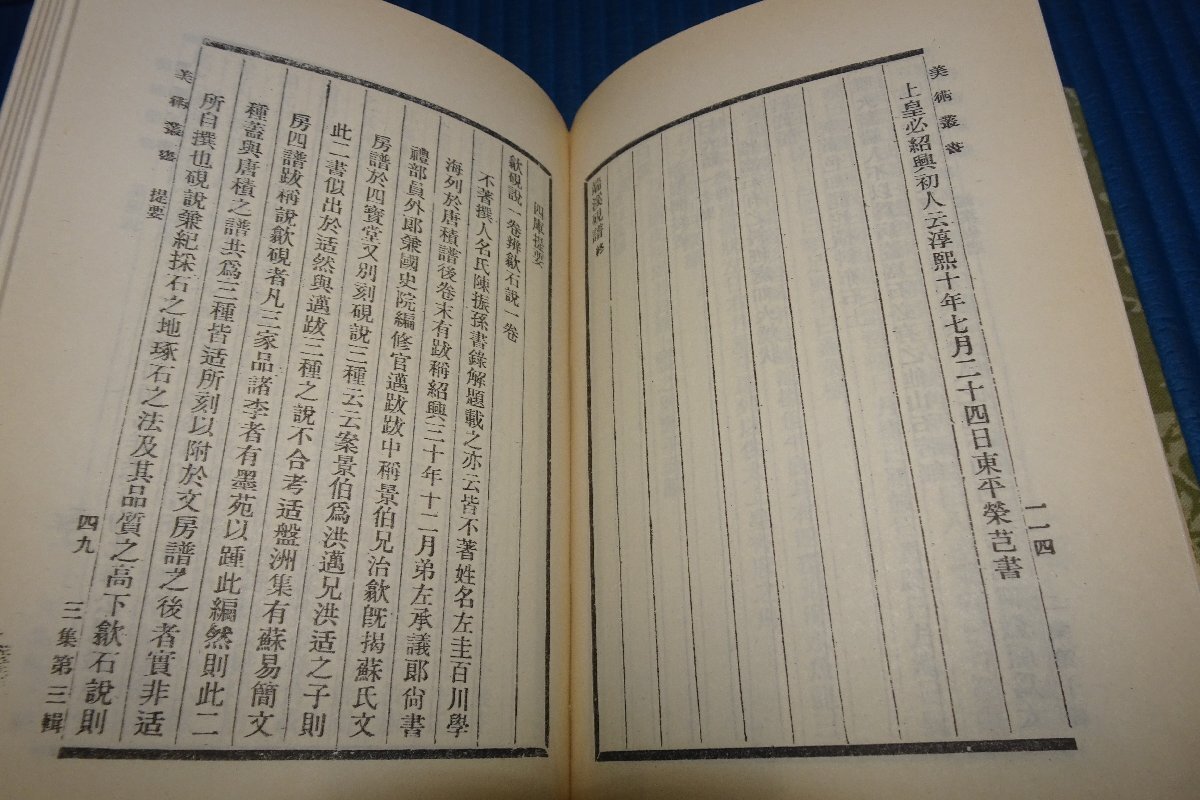 美術叢書
上皇必紹興初人云淳熙十年七月二十四日東平榮芑書
端溪硯譜終
一一四
四庫提要
歙硯說一卷辨歙石說一卷
不著撰人名氏陳振孫書錄解題載之亦云皆不著姓名左圭百川學
海列於唐積譜後卷末有跋稱紹興三十年十二月弟左承議郎尙書
禮部員外郎兼國史院編修官邁跋跋中稱景伯兄治歙旣揭蘇氏文
房譜於四寶堂又別刻硯說三種云云案景伯爲洪邁兄洪适之子則
此二書似出於适然與邁跋三種之說不合考适盤洲集有蘇易簡文
房四譜跋稱說歙硯者凡三家品諸李者有墨苑以踵此編然則此二
種蓋與唐積之譜共爲三種皆适所刻以附於文房譜之後者實非适
所自撰也硯說兼紀採石之地琢石之法及其品質之高下歙石說則
美術叢書
提要
四九
三集第三輯